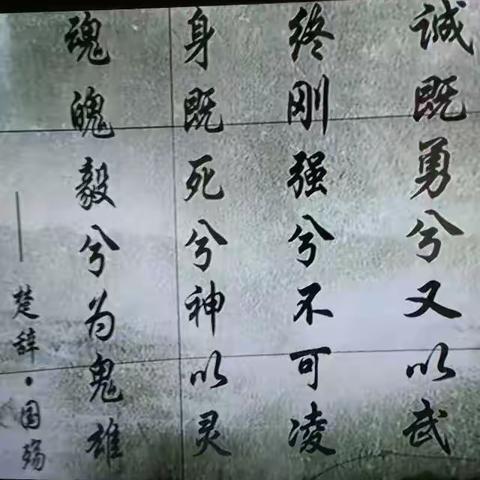 诚既勇兮又以武
终刚强兮不可凌
身既死兮神以灵
魂魄毅兮为鬼雄
——楚辞·国殇